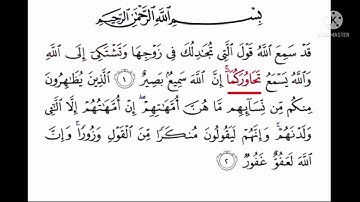 بِسْمِ ٱللَّهِ ٱلرَّحْمَٰنِ ٱلرَّحِيمِ
KINEMASTER
قَدْ سَمِعَ ٱللَّهُ قَوْلَ ٱلَّتِي تُجَٰدِلُكَ فِي زَوْجِهَا وَتَشْتَكِيٓ إِلَى ٱللَّهِ
وَٱللَّهُ يَسْمَعُ تَحَاوُرَكُمَآ ۚ إِنَّ ٱللَّهَ سَمِيعٌۢ بَصِيرٌ ١ ٱلَّذِينَ يُظَٰهِرُونَ
مِنكُم مِّن نِّسَآئِهِم مَّا هُنَّ أُمَّهَٰتِهِمْ ۖ إِنْ أُمَّهَٰتُهُمْ إِلَّا ٱلَّٰٓـِٔي
وَلَدْنَهُمْ ۚ وَإِنَّهُمْ لَيَقُولُونَ مُنكَرًا مِّنَ ٱلْقَوْلِ وَزُورًا ۚ وَإِنَّ
ٱللَّهَ لَعَفُوٌّ غَفُورٌ ٢